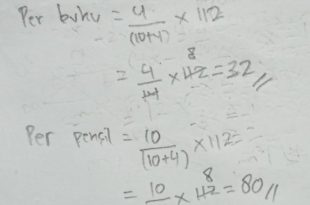 Per buku = 4/(10+4) × 112
= 4/14 × 112 8 = 32 //
Per pensil = 10/(10+4) × 112 =
= 10/ × 112 8 = 80 //